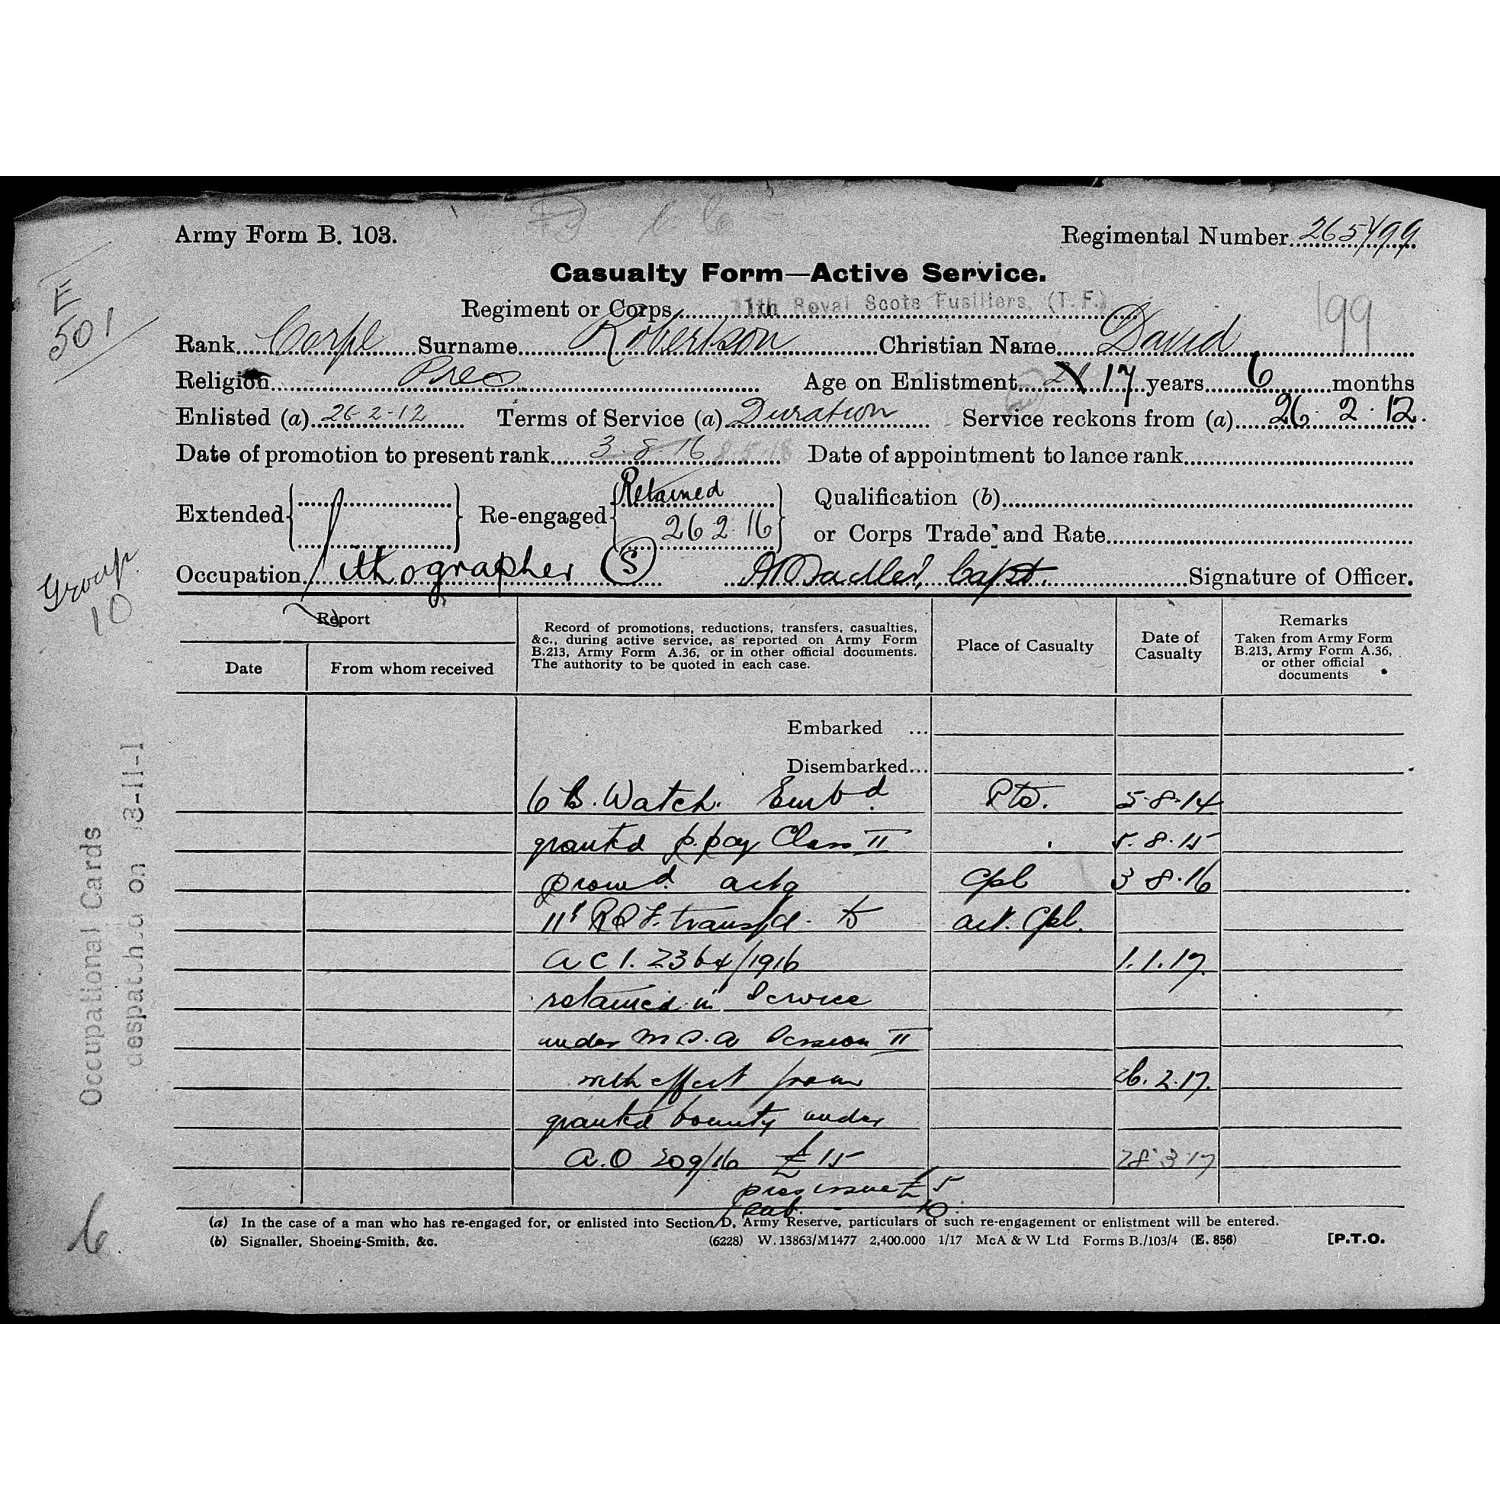 Army Form B. 103.
Regimental Number 265499
Casualty Form—Active Service.
E
501
Regiment or Corps 11th Royal Scots Fusiliers, (T.F.)
199
Rank Corpl Surname Robertson Christian Name David
Religion Pres Age on Enlistment 17 years 6 months
Enlisted (a) 26-2-12 Terms of Service (a) Duration Service reckons from (a) 26.2.12.
Date of promotion to present rank 3-8-16 8-5-18 Date of appointment to lance rank
Extended Re-engaged Retained 26 2.16 Qualification (b)
or Corps Trade and Rate
Occupation Lithographer (S) Capt. Signature of Officer.
Group
10
Report
Date
From whom received
Record of promotions, reductions, transfers, casualties,
&c., during active service, as reported on Army Form
B.213, Army Form A.36, or in other official documents.
The authority to be quoted in each case.
Place of Casualty
Date of
Casualty
Remarks
Taken from Army Form
B.213, Army Form A.36,
or other official
documents
Embarked ...
Disembarked...
6 B. Watch. Embd. Pte. 5-8-14
granted p. pay Class II 5.8.15
promd. actg Cpl 3 8.16
11th R S F. transfd. to act. Cpl.
A C I. 2364/1916 1.1.17.
retained in Service
under M.S.A Session II
with effect from 26.2.17.
granted bounty under
A.O 209/16 £15 28.3.17
pres issue £5
10
Occupational Cards
despatched on 3-11-1
6
(a) In the case of a man who has re-engaged for, or enlisted into Section D, Army Reserve, particulars of such re-engagement or enlistment will be entered.
(b) Signaller, Shoeing-Smith, &c.
(6228) W.13863/M1477 2,400.000 1/17 McA & W Ltd Forms B./103/4 (E. 856)
[P.T.O.